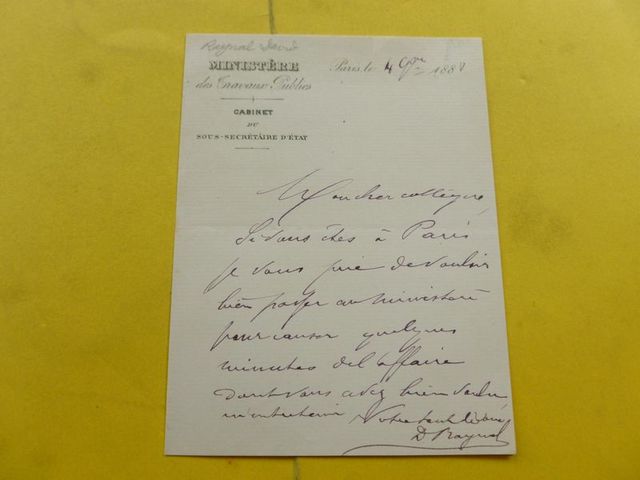 Raynal David
MINISTÈRE
des Travaux Publics
Paris, le 4 188
CABINET
DU
SOUS-SECRÉTAIRE D'ÉTAT
Mon cher collègue,
Si vous êtes à Paris
je vous prie de vouloir
bien passer au ministère
pour causer quelques
minutes de l'affaire
dont vous avez bien voulu
m'entretenir
Votre tout dévoué
D Raynal